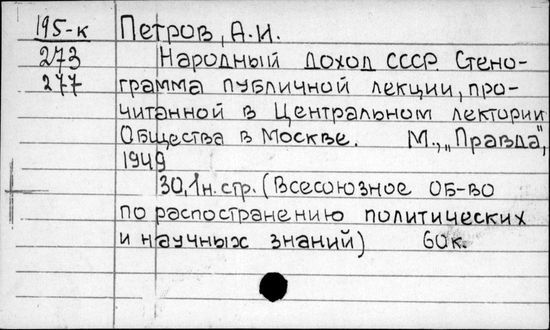 195-к Петров, А.И.
273 Народный доход СССР. Стено-
277 грамма публичной лекции, про-
читанной в Центральном лектории
Общества в Москве. М., „Правда",
1949
30, 1 н. стр. (Всесоюзное об-во
по распостранению политических
и научных знаний) 60к.